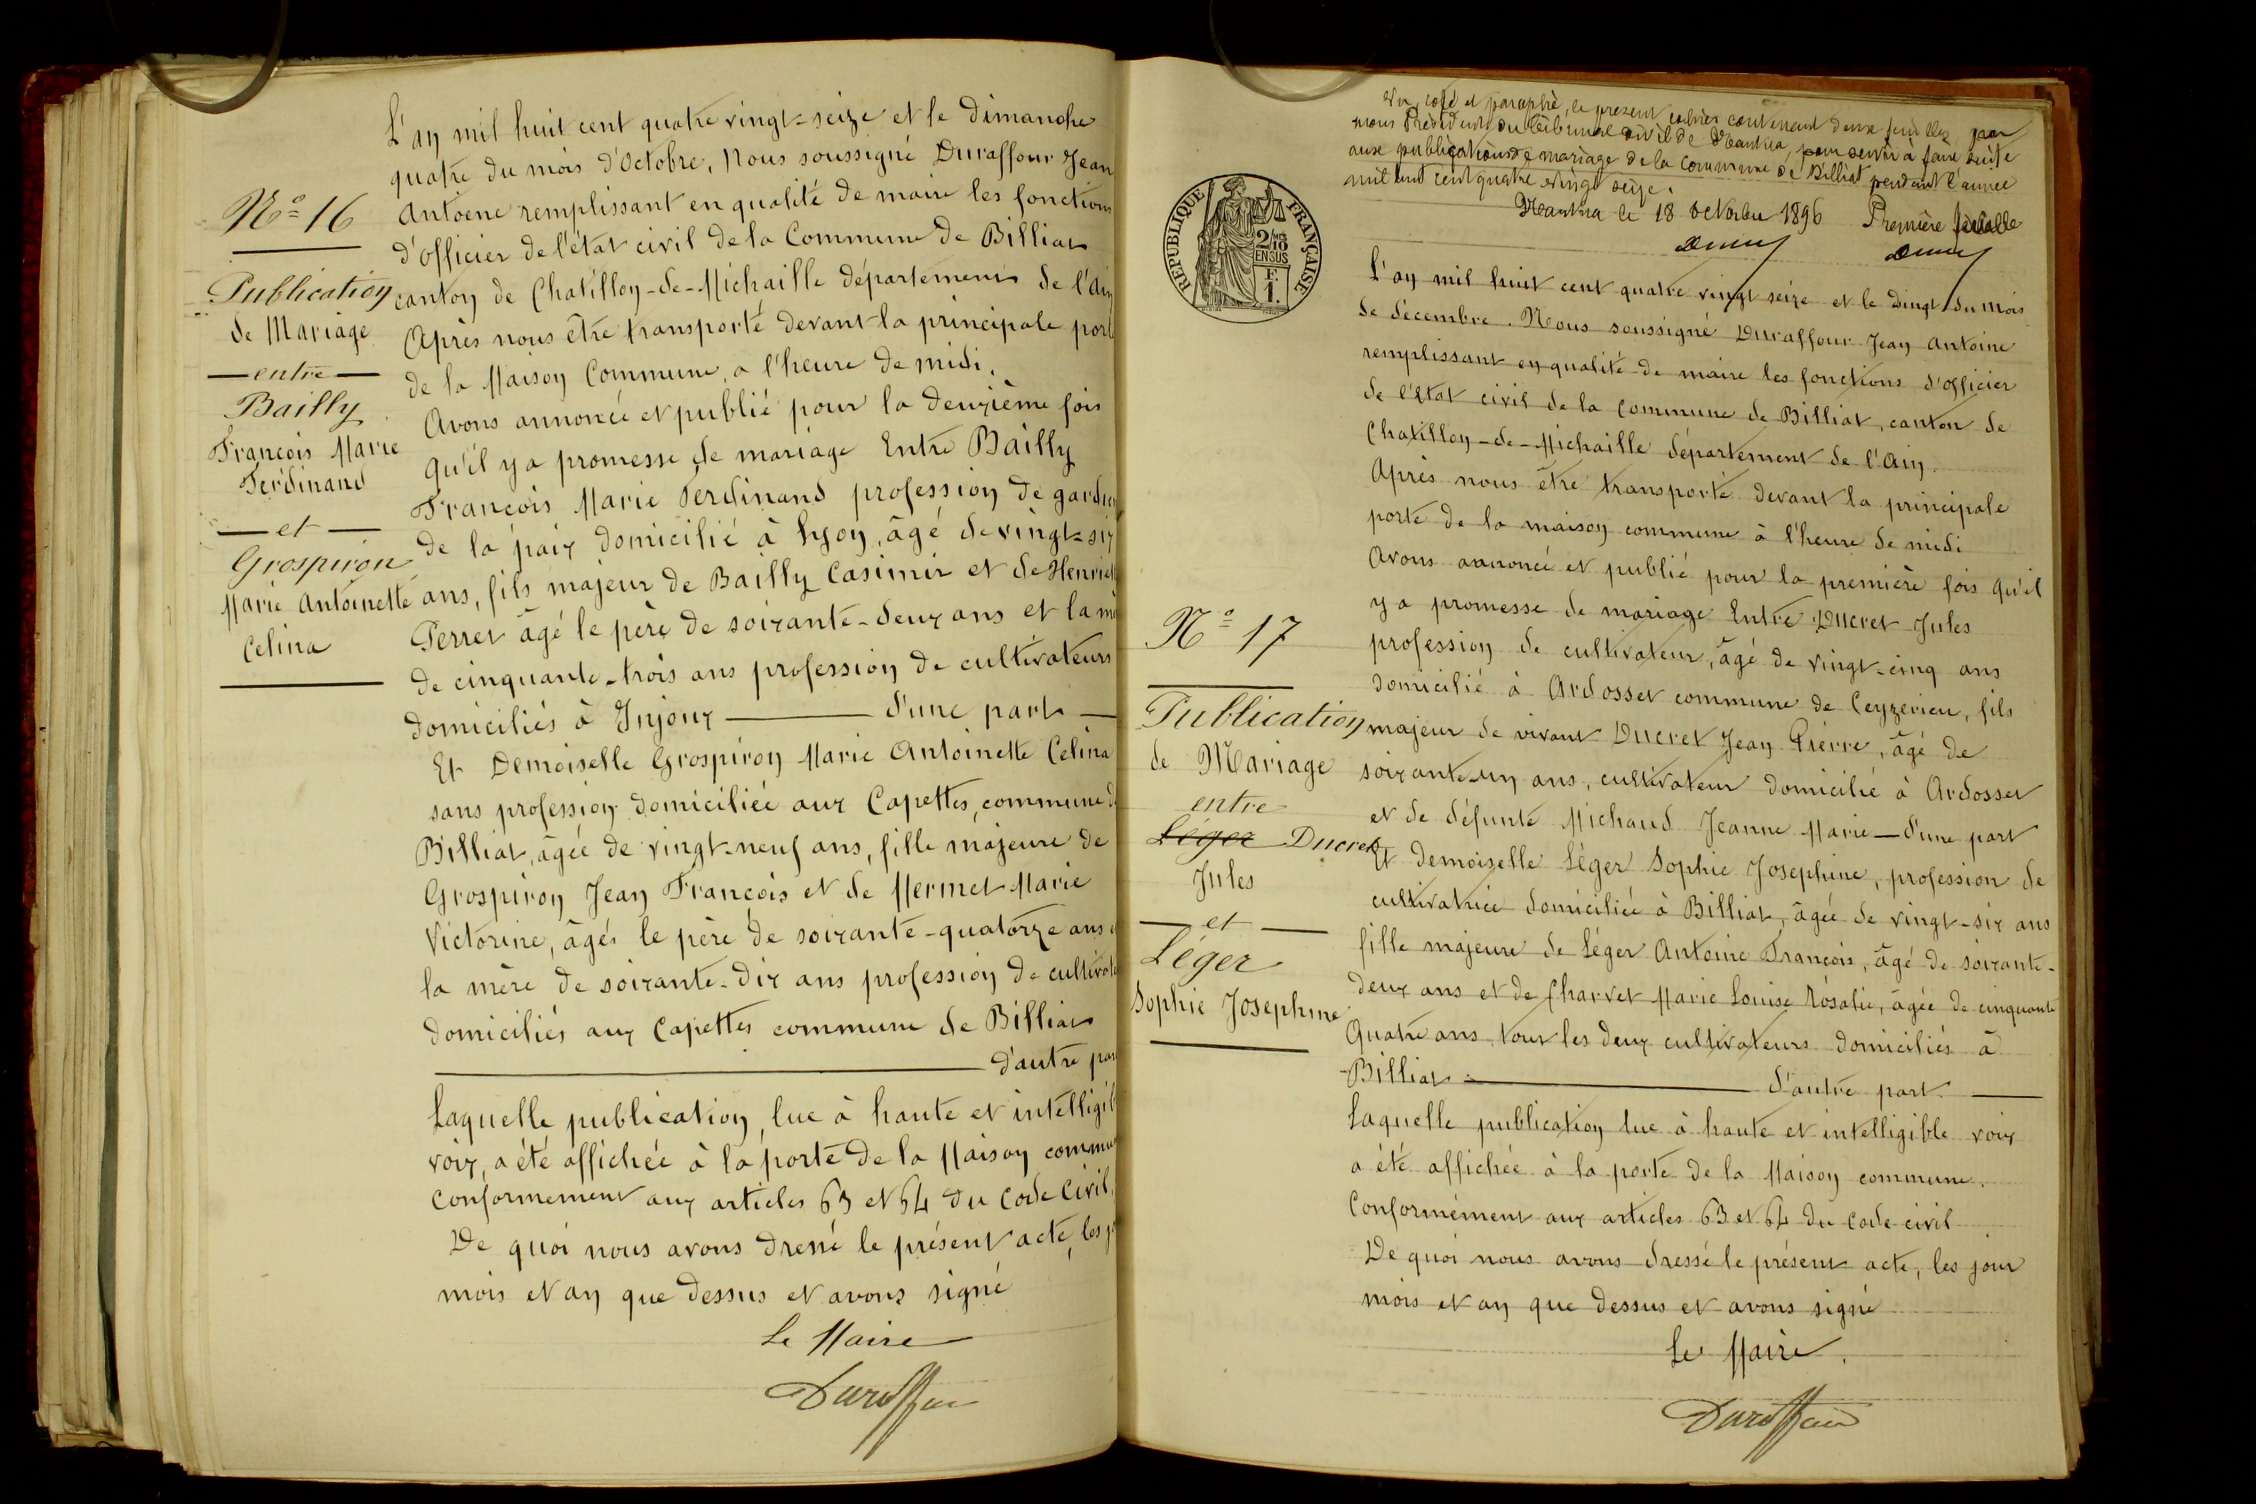 N° 16
Publication
de Mariage
entre
Bailly
François Marie
Ferdinand
et
Grospiron
Marie Antoinette
Celina
L'an mil huit cent quatre vingt-seize et le Dimanche
quatre du mois d'Octobre, Nous soussigné Duraffour Jean
Antoene remplissant en qualité de maire les fonctions
d'officier de l'état civil de la Commune de Billiat
canton de Chatillon-de-Michaille département de l'Ain
Après nous être transporté devant la principale porte
de la Maison Commune, a l'heure de midi,
Avons annoncé et publié pour la deuxième fois
qu'il y a promesse de mariage Entre Bailly
François Marie Ferdinand profession de gardien
de la paix domicilié à Lyon, âgé de vingt-six
ans, fils majeur de Bailly Casimir et de Henriet
Perret âgé le père de soixante-deux ans et la mè
de cinquante-trois ans profession de cultivateurs
domiciliés à Injoux d'une part
Et Demoiselle Grospiron Marie Antoinette Celina
sans profession domiciliée aux Capettes, commune d
Billiat, âgée de vingt-neuf ans, fille majeure de
Grospiron Jean François et de Mermet Marie
Victorine, âgés le père de soixante-quatorze ans e
la mère de soixante-dix ans profession de cultivate
domiciliés aux Capettes commune de Billiat
d'autre par
Laquelle publication, lue à haute et intelligib
voix, a été affichée à la porte de la Maison commu
conformement aux articles 63 et 64 du Code Civil.
De quoi nous avons dressé le présent acte, les j
mois et an que dessus et avons signé
Le Maire
Duraffour
Vu, coté et paraphé, le présent cahier contenant deux feuilles par
nous Président du Tribunal civil de Nantua, pour servir à faire suite
aux publications de mariage de la commune de Billiat pendant l'année
mil huit cent quatre vingt seize.
Nantua le 18 octobre 1896 Première feuille
REPUBLIQUE FRANÇAISE
2/10 EN SUS
F. 1.
N° 17
Publication
de Mariage
entre
Léger Ducret
Jules
et
Léger
Sophie Josephine
L'an mil huit cent quatre vingt seize et le vingt du mois
de décembre. Nous soussigné Duraffour Jean Antoine
remplissant en qualité de maire les fonctions d'officier
de l'état civil de la commune de Billiat, canton de
Chatillon-de-Michaille département de l'Ain.
Après nous être transporté devant la principale
porte de la maison commune à l'heure de midi
Avons annoncé et publié pour la première fois qu'il
y a promesse de mariage Entre Ducret Jules
profession de cultivateur, âgé de vingt-cinq ans
domicilié à Ardosset commune de Ceyzerieu, fils
majeur de vivant Ducret Jean Pierre, âgé de
soixante-un ans, cultivateur domicilié à Ardosset
et de défunte Michaud Jeanne Marie d'une part
Et demoiselle Léger Sophie Josephine, profession de
cultivatrice domiciliée à Billiat, âgée de vingt-six ans
fille majeure de Léger Antoine François, âgé de soixante-
deux ans et de Charvet Marie Louise Rosalie, âgée de cinquante
quatre ans, tous les deux cultivateurs domiciliés à
Billiat d'autre part.
Laquelle publication lue à haute et intelligible voix
a été affichée à la porte de la Maison commune.
Conformément aux articles 63 et 64 du code civil
De quoi nous avons dressé le présent acte, les jour
mois et an que dessus et avons signé
Le Maire.
Duraffour